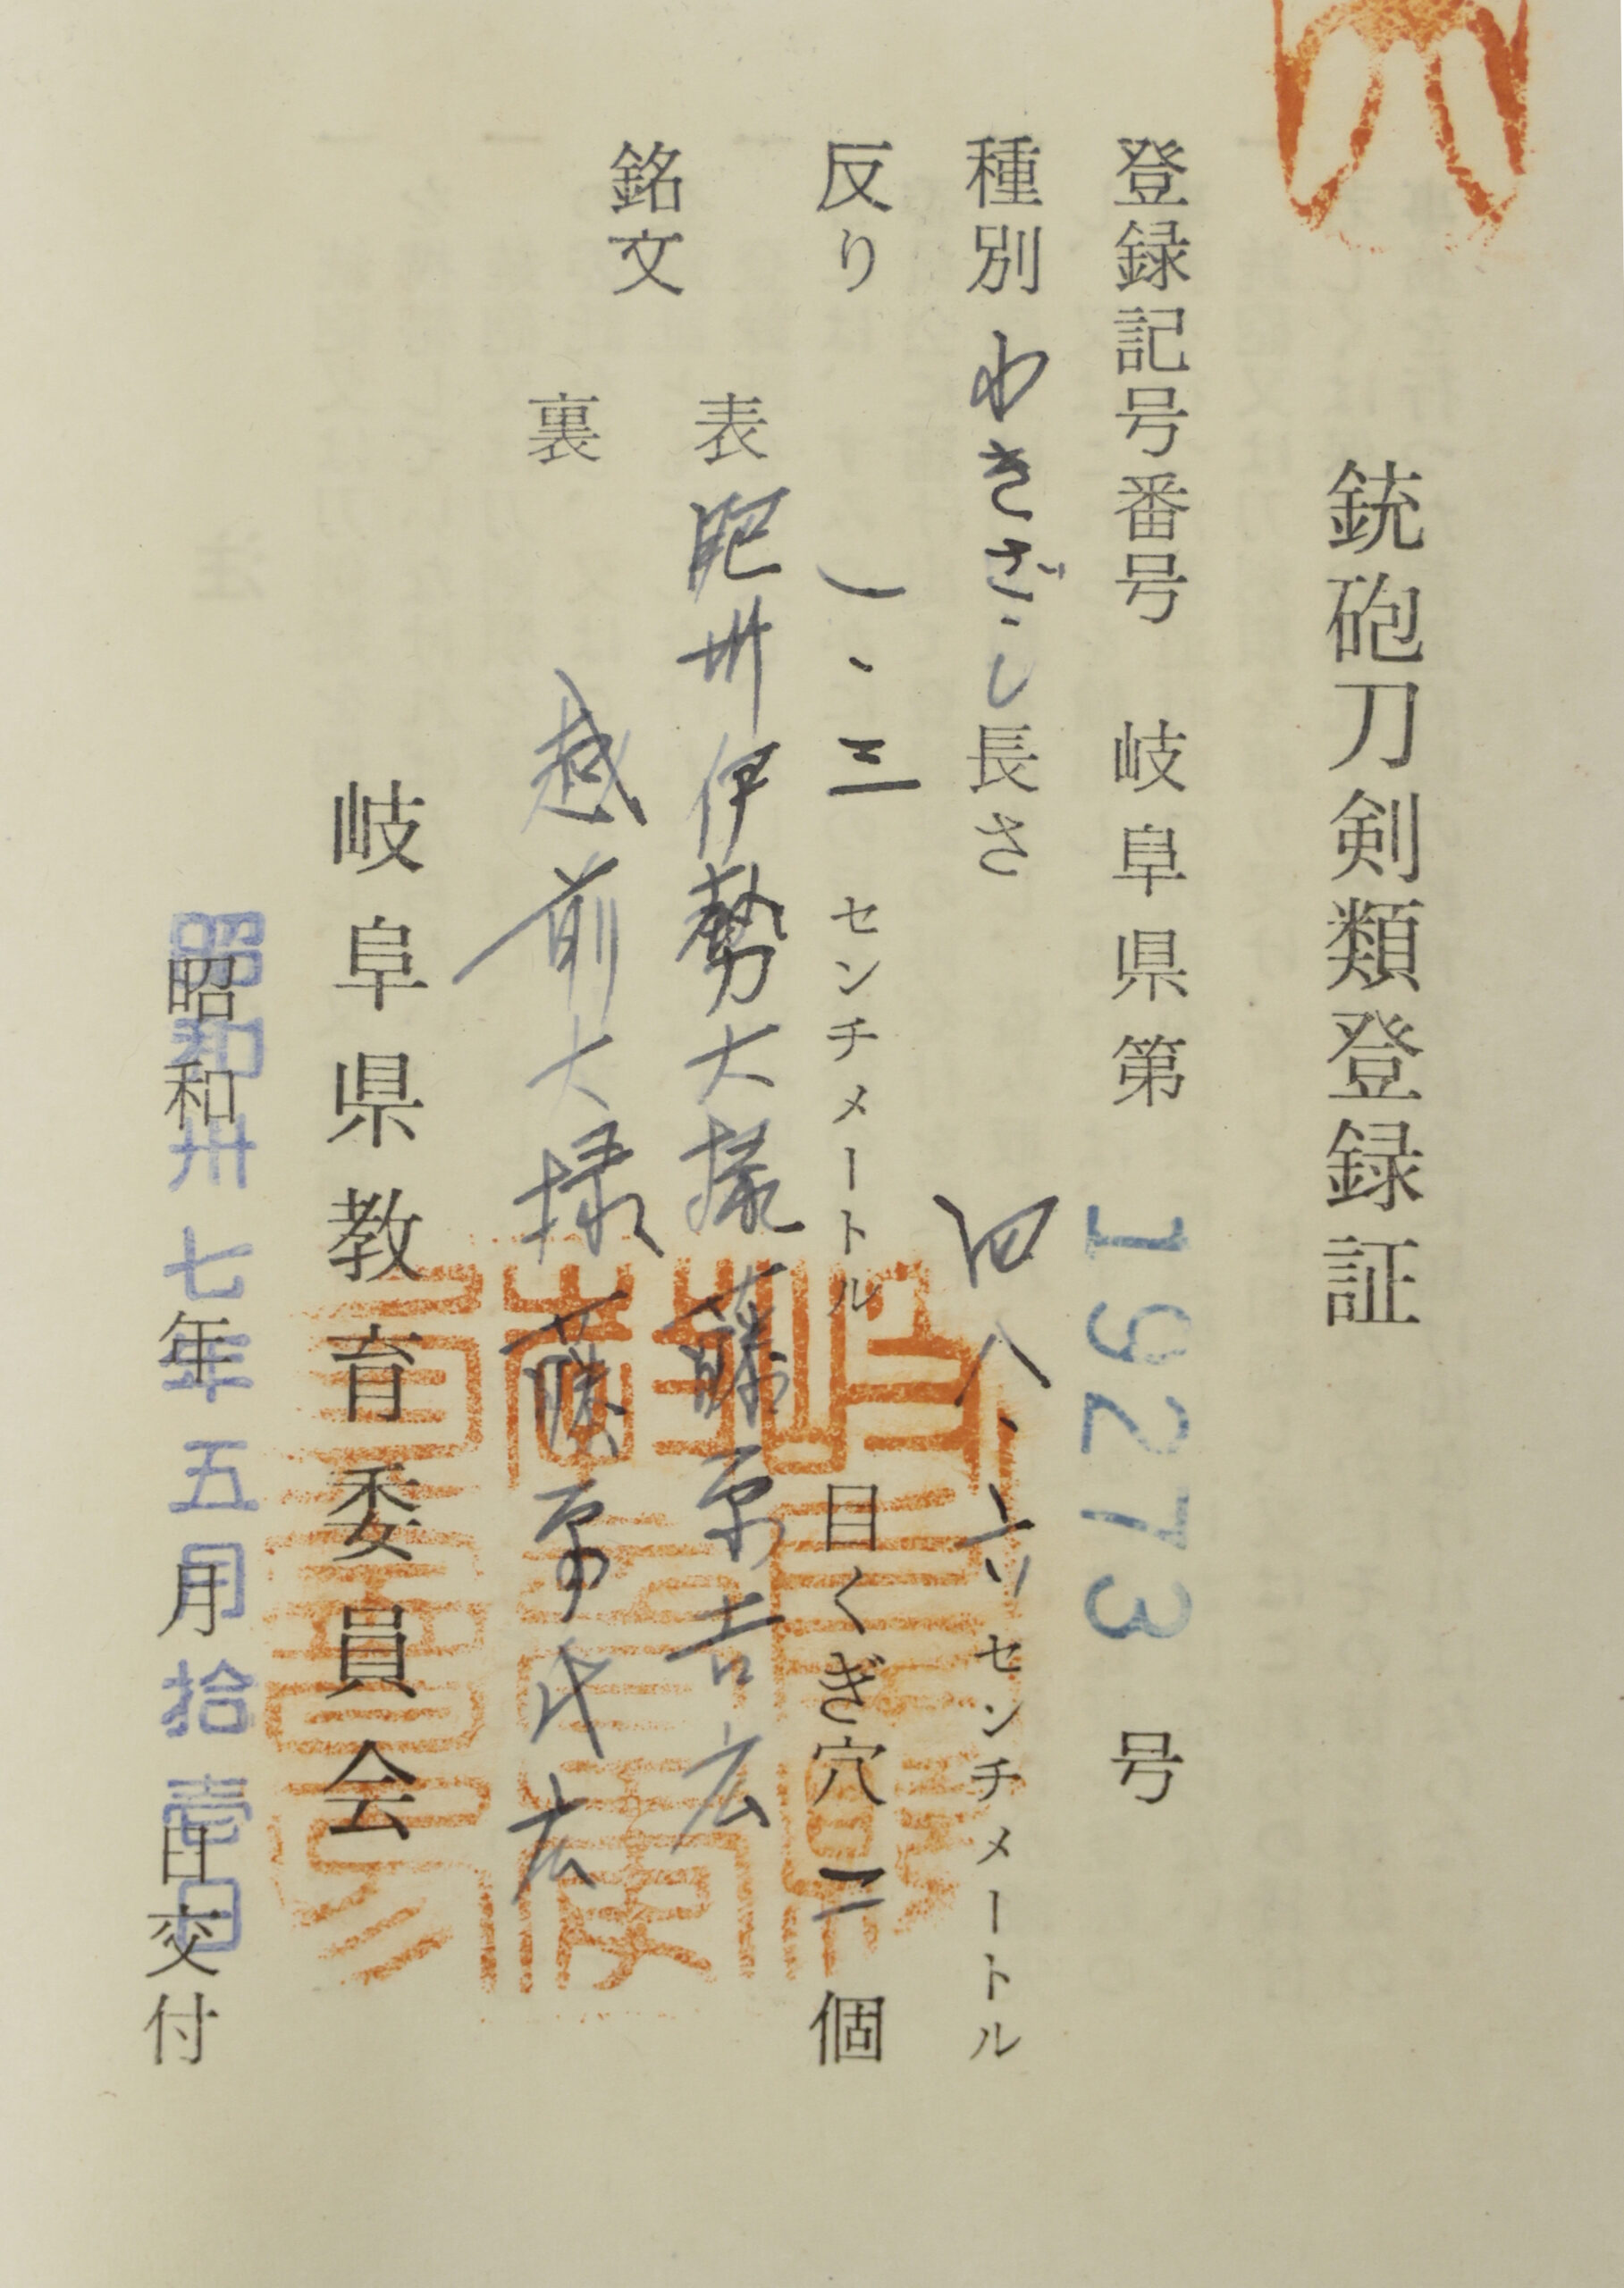 銃砲刀剣類登録証
登録記号番号 岐阜県第 19273 号
種別 わきざし 長さ 四八、六 センチメートル
反り 一、三 センチメートル 目くぎ穴 二 個
銘文
表 肥州伊勢大掾藤原吉広
裏 越前大掾藤原氏広
岐阜県教育委員会
昭和 年 月 日交付
昭和卅七年五月拾壱日